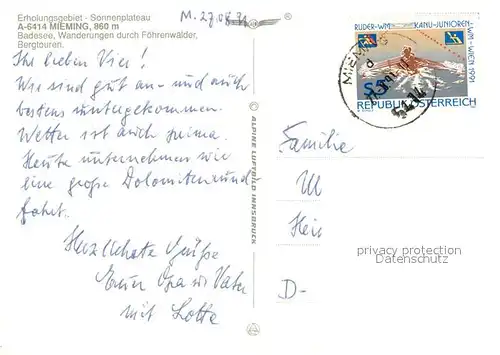 Erholungsgebiet - Sonnenplateau
A-6414 MIEMING, 860 m
Badesee, Wanderungen durch Föhrenwälder,
Bergtouren.
M. 27.08.91
Ihr lieben Vier!
Wir sind gut an- und auch
bestens untergekommen.
Wetter ist auch prima.
Heute unternehmen wir
eine große Dolomitenrund
fahrt.
Herzlichste Grüße
Euer Opa u. Vater
mit Lotte
© ALPINE LUFTBILD INNSBRUCK
RUDER-WM KANU-JUNIOREN-WM-WIEN 1991
S 5
REPUBLIK ÖSTERREICH
MIEMING
Familie
M
Hei
D-
privacy protection
Datenschutz